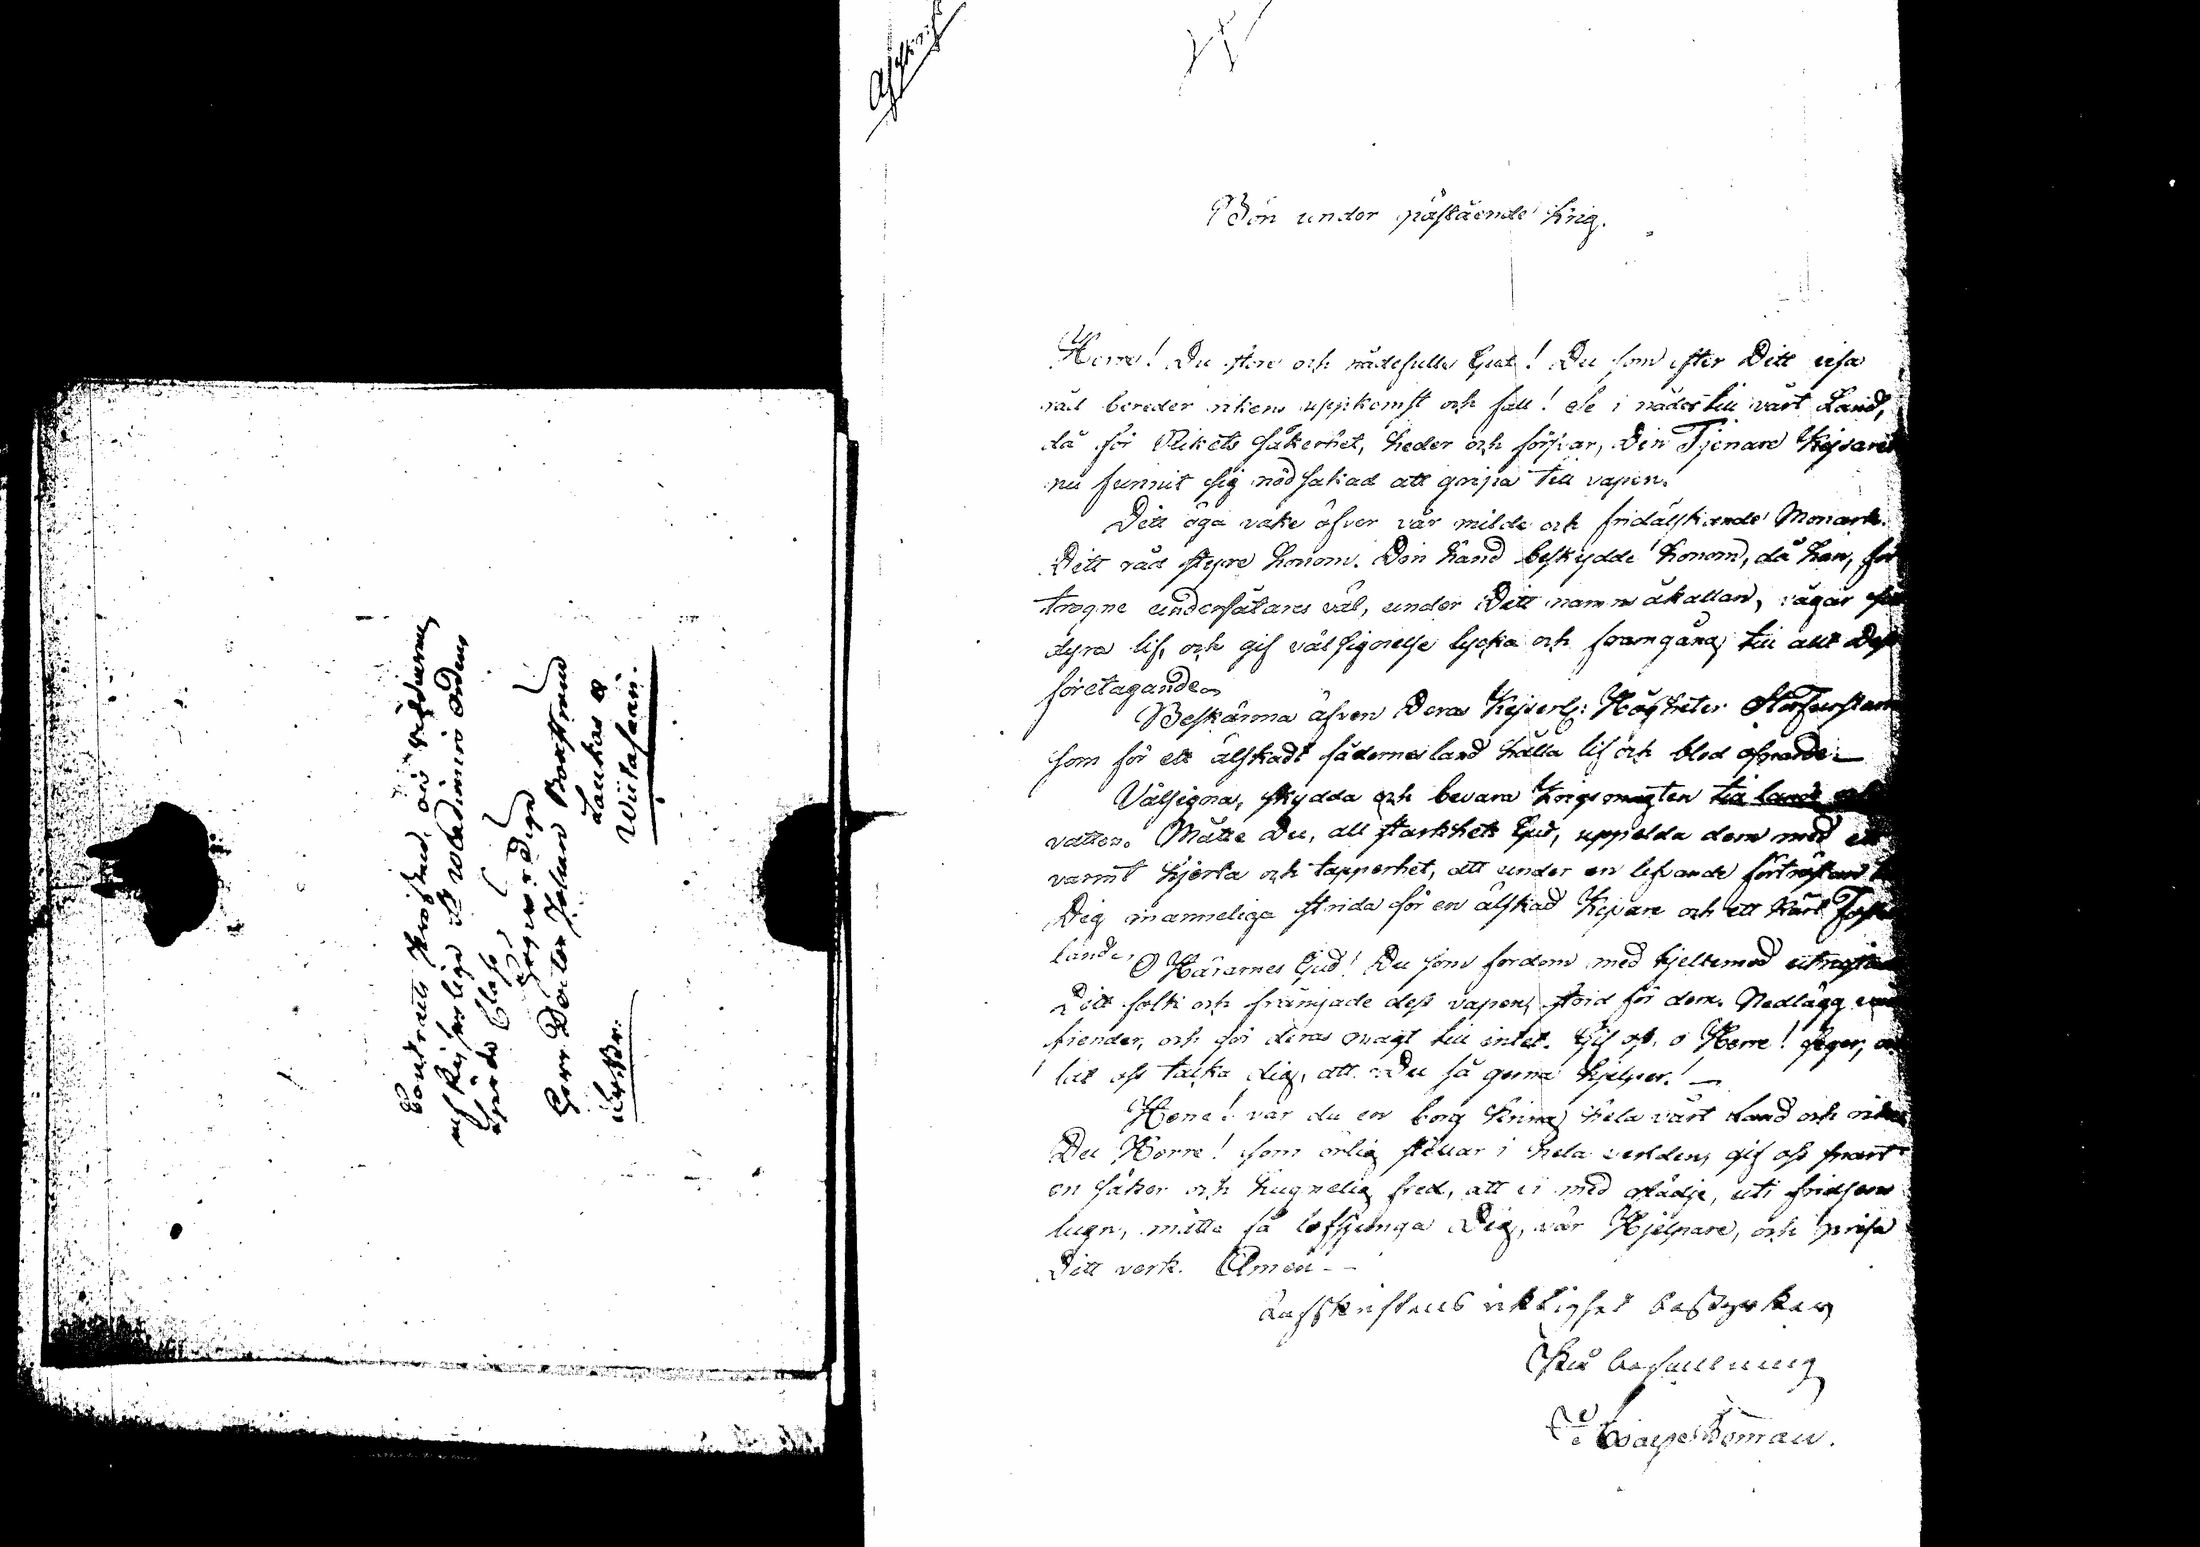 Contracts Prosten, och Riddaren
af Kejserliga St Wladimirs Ordens
fjerde Class
Högvördige
Herr Doctor Johan Boxström
Laukas &
Wiitasaari.
Afskrift
Bön under påstående Krig.
Herre! Du store och nådefulle Gud! Du som efter Ditt visa
råd bereder rikens uppkomst och fall! Se i nåder till vårt Land,
då för Rikets säkerhet, heder och försvar, Din Tjenare Kejsaren
nu funnit sig nödsakad att gripa till vapen.
Ditt öga vake öfver vår milde och fridälskande Monark.
Ditt råd styre honom. Din hand beskydde honom, då han, för
trogne undersåtares väl, under Ditt namns åkallan, vågar sitt
dyra lif, och gif välsignelse lycka och framgång till allt Dess
företagande.
Beskärma äfven Deras Kejserl: Högheter Storfurstarne
som för ett älskadt fädernesland hålla lif och blod ospardt.
Välsigna, skydda och bevara Krigsmagten till lands och
vatten. Måtte Du, all starkhets Gud, uppelda dem med ett
varmt hjerta och tapperhet, att under en lefvande förtröstan till
Dig manneliga strida för en älskad Kejsare och ett kärt Foster
land.
O Härarnes Gud! Du som fordom med hjeltemod utrustade
Ditt folk och främjade dess vapen, strid för dem. Nedlägg våra
fiender, och gör deras magt till intet. Gif oss, o Herre! seger, och
låt oss tacka dig, att Du så gerna hjelper! —
Herre! var du en borg kring hela vårt Land och
Du Herre! som örlig stillar i hela verlden, gif oss snart
en säker och hugnelig fred, att vi med glädje, uti fridsens
lugn, måtte få lofsjunga Dig, vår Hjelpare, och prisa
Ditt verk. Amen —
Afskriftens riktighet bestyrker
På befallning